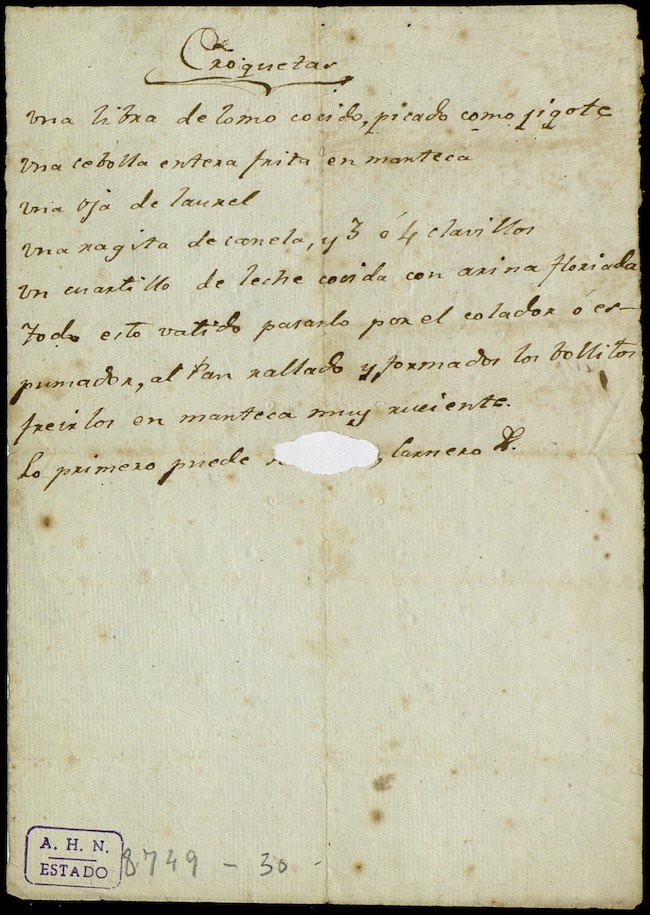 Croquetas
una libra de lomo cocido, picado como jigote
una cebolla entera frita en manteca
una oja de laurel
una ragita de canela, y 3 ó 4 clavillos
un cuartillo de leche cocida con arina floriada
todo esto vatido pasarlo por el colador ó es-
pumador, al Pan rallado y formados los bollitos
freirlos en manteca muy ruciente.
Lo primero puede , Carnero &.
A. H. N.
ESTADO
8749 - 30 -